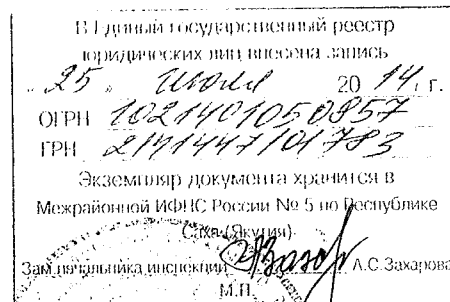 В Единый государственный реестр
юридических лиц внесена запись
„ 25 „ июля 20 14, г.
ОГРН 1021401050857
ГРН 2141447101783
Экземпляр документа хранится в
Межрайонной ИФНС России № 5 по Республике
Саха (Якутия)
Зам.начальника инспекции А.С.Захарова
М.П.